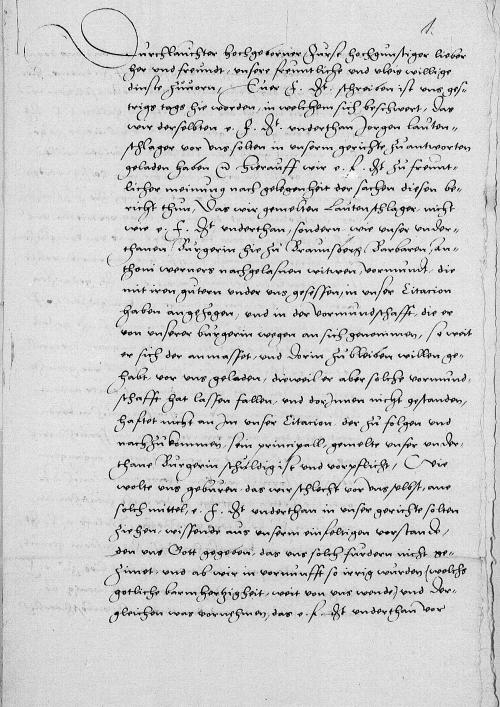 1.
Durchlauchter hochgeborner Furst hochgunstiger lieber
her und freundt, unsere freuntliche und vleis willige
dinste zuuorn, Euer f. g. schreiben ist uns ges-
trigs tags hie worden, in welchem sich beschwert, das
wir derselbten e. f. g. underthan Jorgen Lauten-
schlager vor uns solten in unserm gerichte zu antworten
geladen haben Hierauff wir e. f. g. zu freunt-
licher meinung nach gelegenheit der sachen diesen be-
richt thun, Das wir gemelten Lautenschlager nicht
wie e. f. g. underthan, sondern wie unser under-
thanen Burgerin hie zu Braunsberg, Barbaren, An-
thoni werners nachgelassen witwen, vormundt, die
mit iren guttern under uns gesessen, in unser Citacion
haben angezogen, und in der vormundschafft, die er
von unserer burgerin wegen an sich genommen, so weit
er sich der anmasset, und dorin zu bleiben willen ge-
habt, vor uns geladen, dieweil er aber solche vormund-
schafft hat lassen fallen, und dorinnen nicht gestanden,
hafftet nicht an im unser Citacion, der zu folgen und
nachzukommen, sein principall, gemelte unser under-
thane Burgerin schuldig ist und vorpflicht, Wie
wolte uns geburen, das wir schlecht vor uns selbst, ane
solch mittel, e. f. g. underthan in unser gerichte solten
ziehen, wissende aus unserm einfeltigen vorstande,
den uns Gott gegeben, das uns solch furdern nicht ge-
zimet, und ab wir in vornunfft so irrig wurden (welchs
gotliche barmhertzigkeit, weit von uns wende) und der-
gleichen was vornehmen, das e. f. g. underthan vor